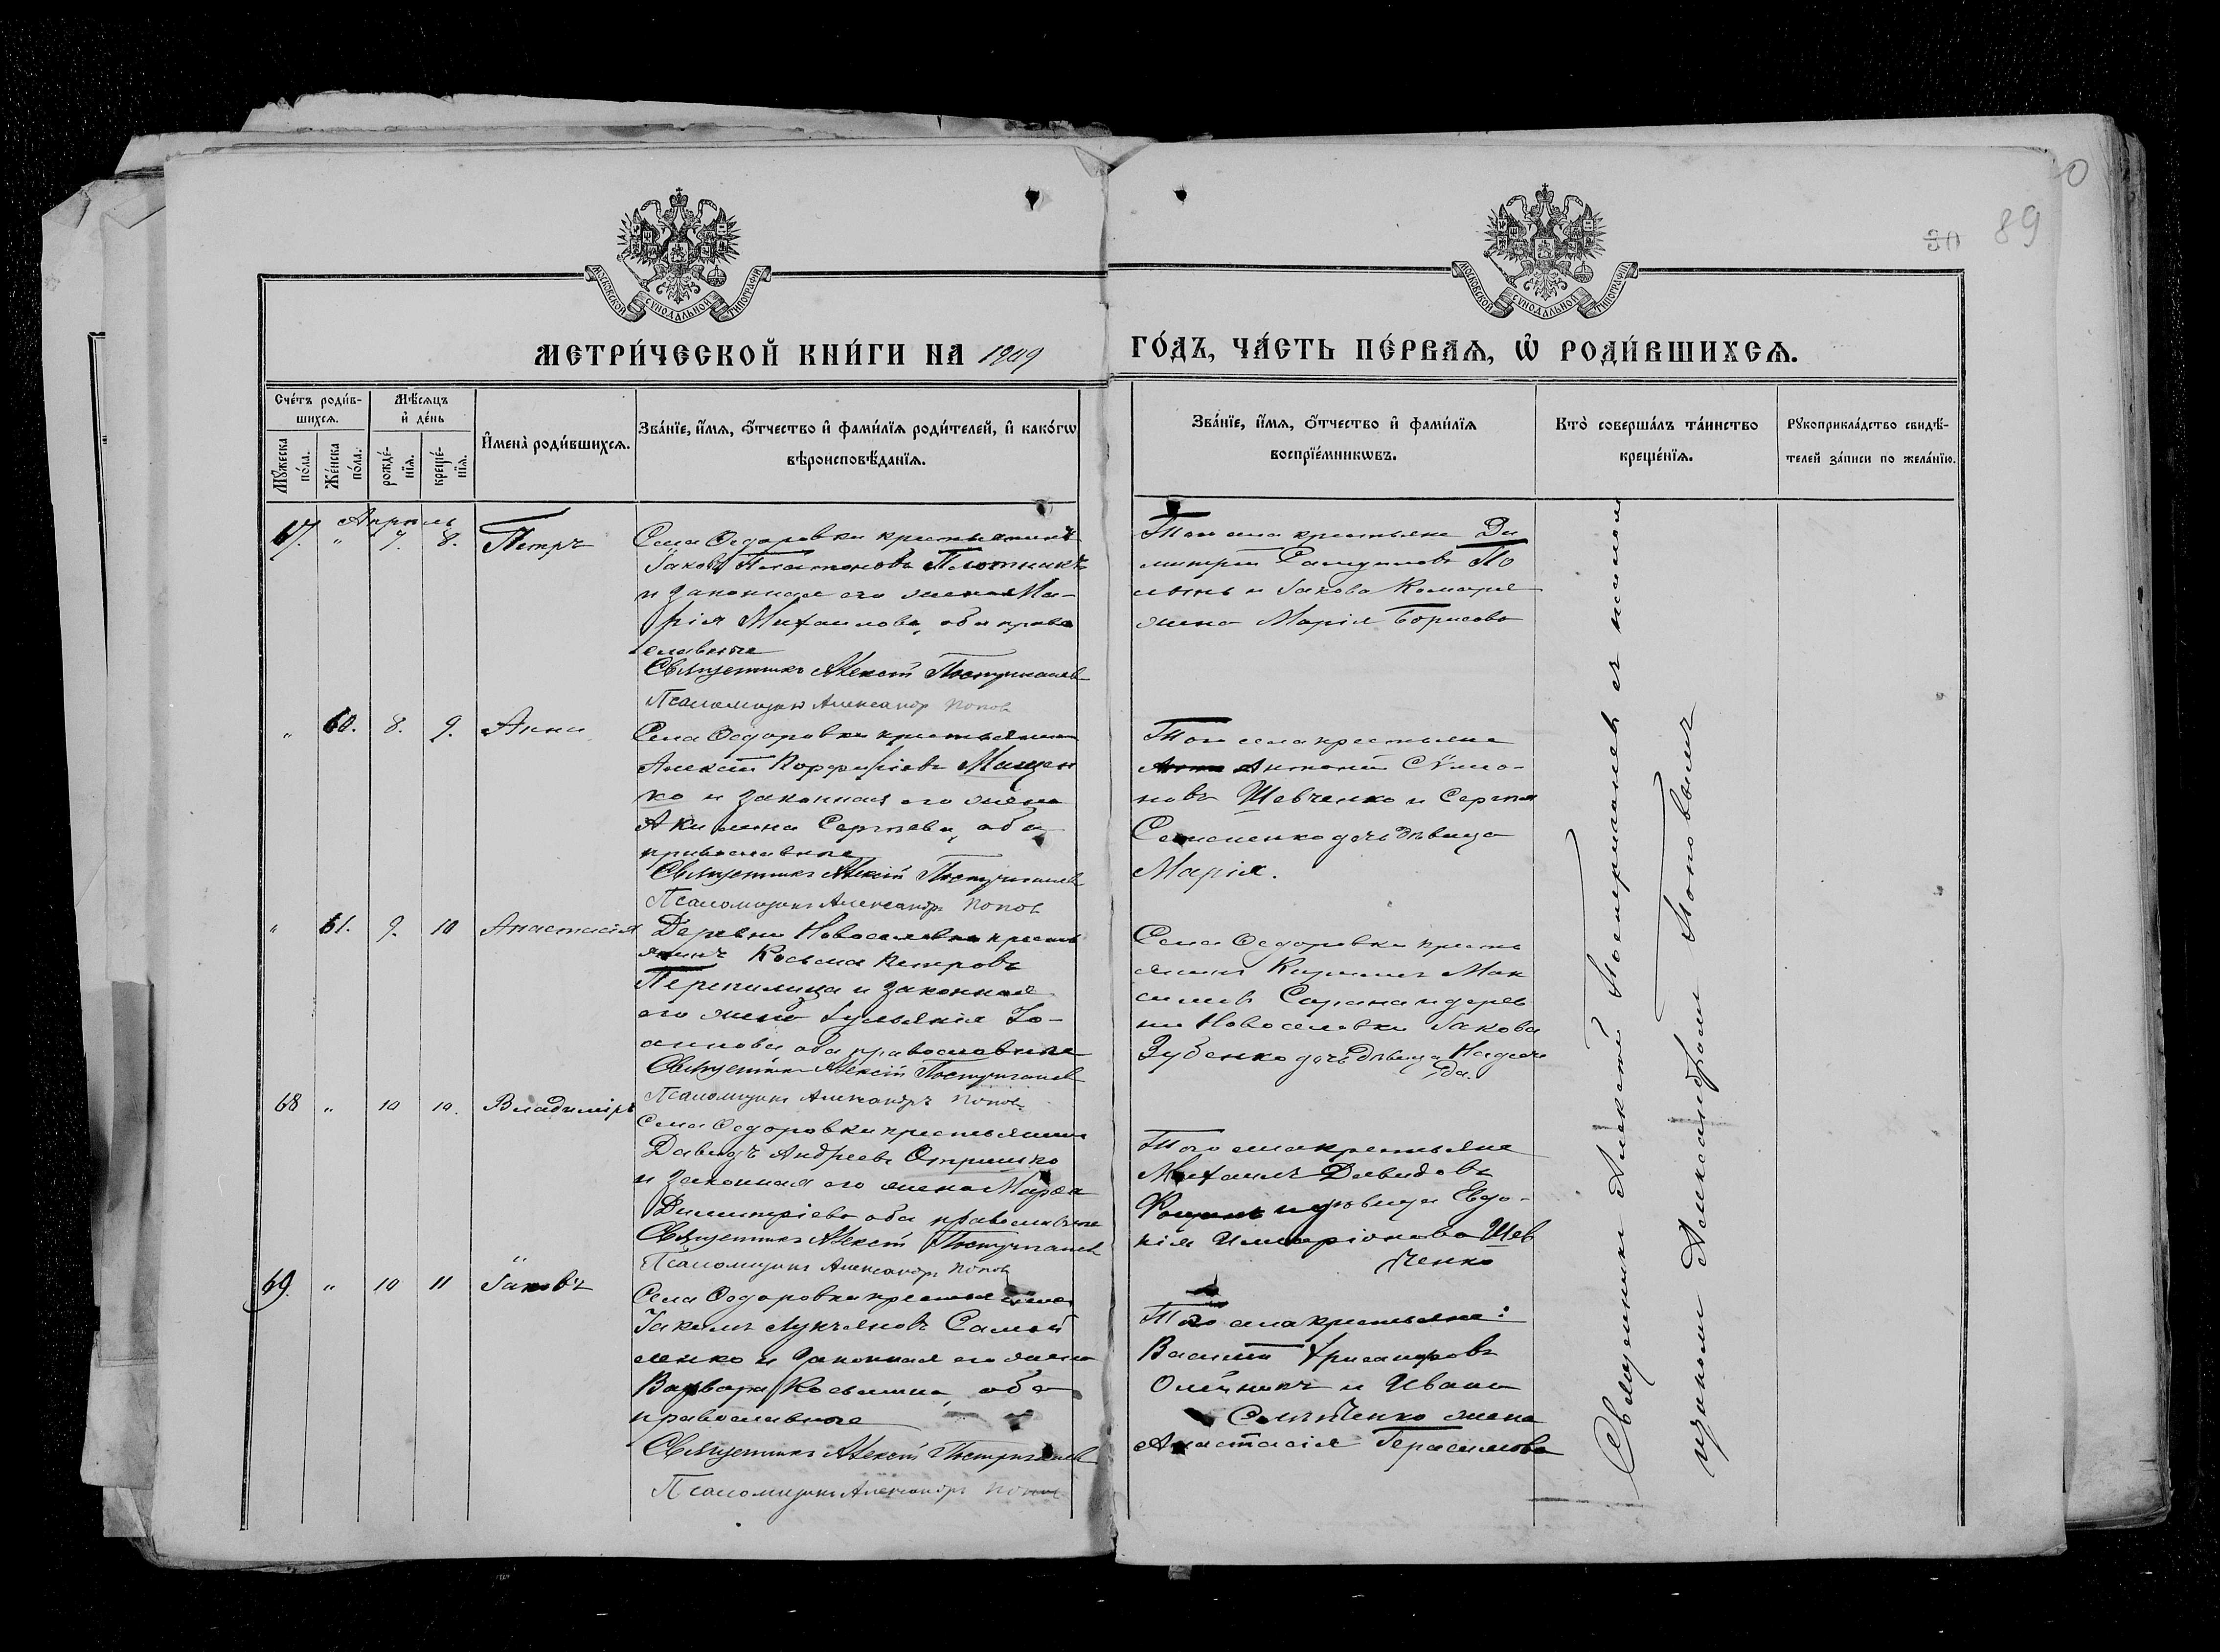 89
30
МОСКОВСКОЙ СѴНОДАЛЬНОЙ ТИПОГРАФІИ
МОСКОВСКОЙ СѴНОДАЛЬНОЙ ТИПОГРАФІИ
МЕТРИ́ЧЕСКОЙ КНИ́ГИ НА 1909
ГО́ДЪ, ЧА́СТЬ ПЕ́РВАѦ, Ѡ҆ РОДИ́ВШИХСѦ.
Сче́тъ роди́в-
шихсѧ.
Мꙋ́жеска по́ла.
Же́нска по́ла.
Мѣ́сѧцъ
и҆ де́нь
рожде́-нїѧ.
креще́-нїѧ.
И҆мена̀ роди́вшихсѧ.
Зва́нїе, и҆́мѧ, ѻ҆́тчество и҆ фами́лїѧ роди́телей, и҆ како́гѡ
вѣроисповѣ́данїѧ.
Зва́нїе, и҆́мѧ, ѻ҆́тчество и҆ фами́лїѧ
воспрїе́мникѡвъ.
Кто̀ соверша́лъ та́инство
креще́нїѧ.
Рꙋкоприкла́дство свидѣ́-
телей за́писи по жела́нїю.
Апрѣль
67. " 7. 8. Петръ
Села Ѳедоровки крестьянинъ
Іаковъ Платоновъ Плотникъ
и законная его жена Ма-
рія Михаилова, оба право
славные
Священникъ Алексій
Псаломщикъ Александръ Попов
Того села крестьяне Ди
митрій По
лынь и Іакова
жена Марія Борисова
" 60. 8. 9. Анна
Села Ѳедоровки крестьянинъ
Алексій Порфиріевъ Мащен
ко и законная его жена
Акилина Сергіева, оба
православные
Священникъ Алексій
Псаломщикъ Александръ Попов
Того села крестьяне
Антоній Сѵмо-
новъ Шевченко и Сергія
Семененко дочь дѣвица
Марія.
" 61. 9. 10 Анастасія
Деревни Новоселовки кресть
янинъ Косьма Петровъ
Перепилица и законная
его жена Іуліанія Іо-
аннова оба православные
Священникъ Алексій
Псаломщикъ Александръ Попов
Села Ѳедоровки кресть
янинъ Кириллъ Мак
симовъ и дерев
ни Новоселовки Іакова
Зубенко дочь дѣвица Надеж
да.
68 " 10 10. Владиміръ
Села Ѳедоровки крестьянинъ
Давидъ Андреевъ Отришко
и законная его жена Марѳа
Димитріева оба православные
Священникъ Алексій
Псаломщикъ Александръ Попов
Того села крестьяне
Михаилъ Давидовъ
и дѣвица Евдо-
кія Иларіонова Шев
ченко
69. " 10 11 Іаковъ
Села Ѳедоровки крестьянинъ
Іакимъ Лукьяновъ Самой
ленко и законная его жена
Варвара Косьмина, оба
православные
Священникъ Алексій
Псаломщикъ Александръ Попов
Того села крестьяне:
Василій Хрисанѳовъ
Олейникъ и Ивана
жена
Анастасія Герасимова
Священникъ Алексій съ псалом
щикомъ Александромъ Поповымъ